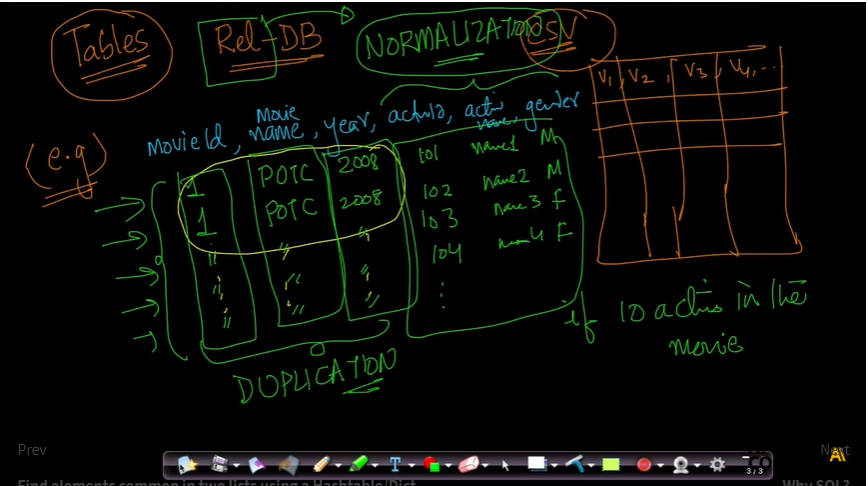 Tables
Rel-DB
NORMALIZATION
CSV
V1, V2, V3, V4, ...
movieId, movie name, year, actorId, actor name, gender
(e.g)
1 POTC 2008 101 name1 M
1 POTC 2008 102 name2 M
" " " 103 name3 F
" " " 104 name4 F
" " " ⋮
DUPLICATION
if 10 actors in the
movie
Prev
Next
T
3 / 3
Find elements common in two lists using a Hashtable/Dict
Why SQL?